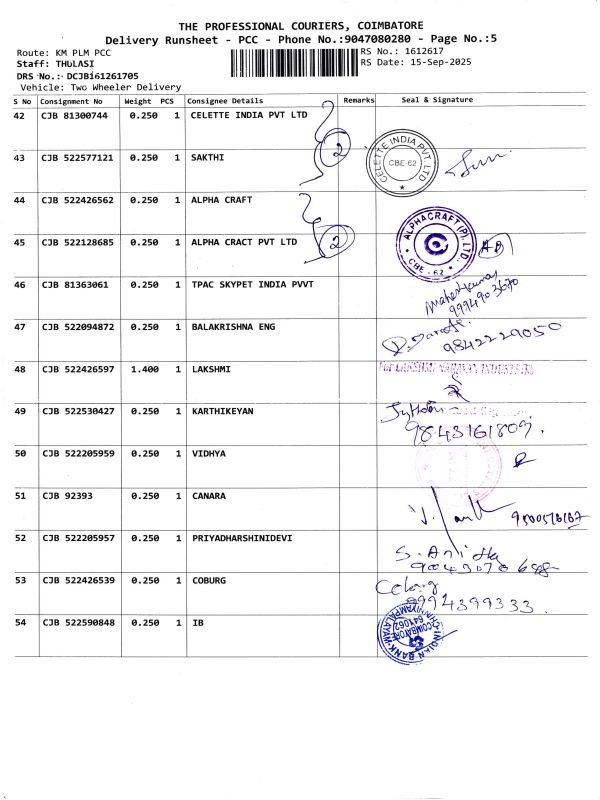 THE PROFESSIONAL COURIERS, COIMBATORE
Delivery Runsheet - PCC - Phone No.:9047080280 - Page No.:5
Route: KM PLM PCC
RS No.: 1612617
Staff: THULASI
RS Date: 15-Sep-2025
DRS No.: DCJB161261705
Vehicle: Two Wheeler Delivery
S No Consignment No Weight PCS Consignee Details Remarks Seal & Signature
42 CJB 81300744 0.250 1 CELETTE INDIA PVT LTD
2
CELETTE INDIA PVT. LTD
CBE-62
43 CJB 522577121 0.250 1 SAKTHI
44 CJB 522426562 0.250 1 ALPHA CRAFT
ALPHACRAFT (P) LTD.
CBE - 62
45 CJB 522128685 0.250 1 ALPHA CRACT PVT LTD
2
46 CJB 81363061 0.250 1 TPAC SKYPET INDIA PVVT
47 CJB 522094872 0.250 1 BALAKRISHNA ENG
9842229050
48 CJB 522426597 1.400 1 LAKSHMI
For LAKSHMI NARAYAN INDUSTRIES
49 CJB 522530427 0.250 1 KARTHIKEYAN
9843161809.
50 CJB 522205959 0.250 1 VIDHYA
51 CJB 92393 0.250 1 CANARA
52 CJB 522205957 0.250 1 PRIYADHARSHINIDEVI
53 CJB 522426539 0.250 1 COBURG
9994399333.
54 CJB 522590848 0.250 1 IB
INDIAN BANK
COIMBATORE
641062